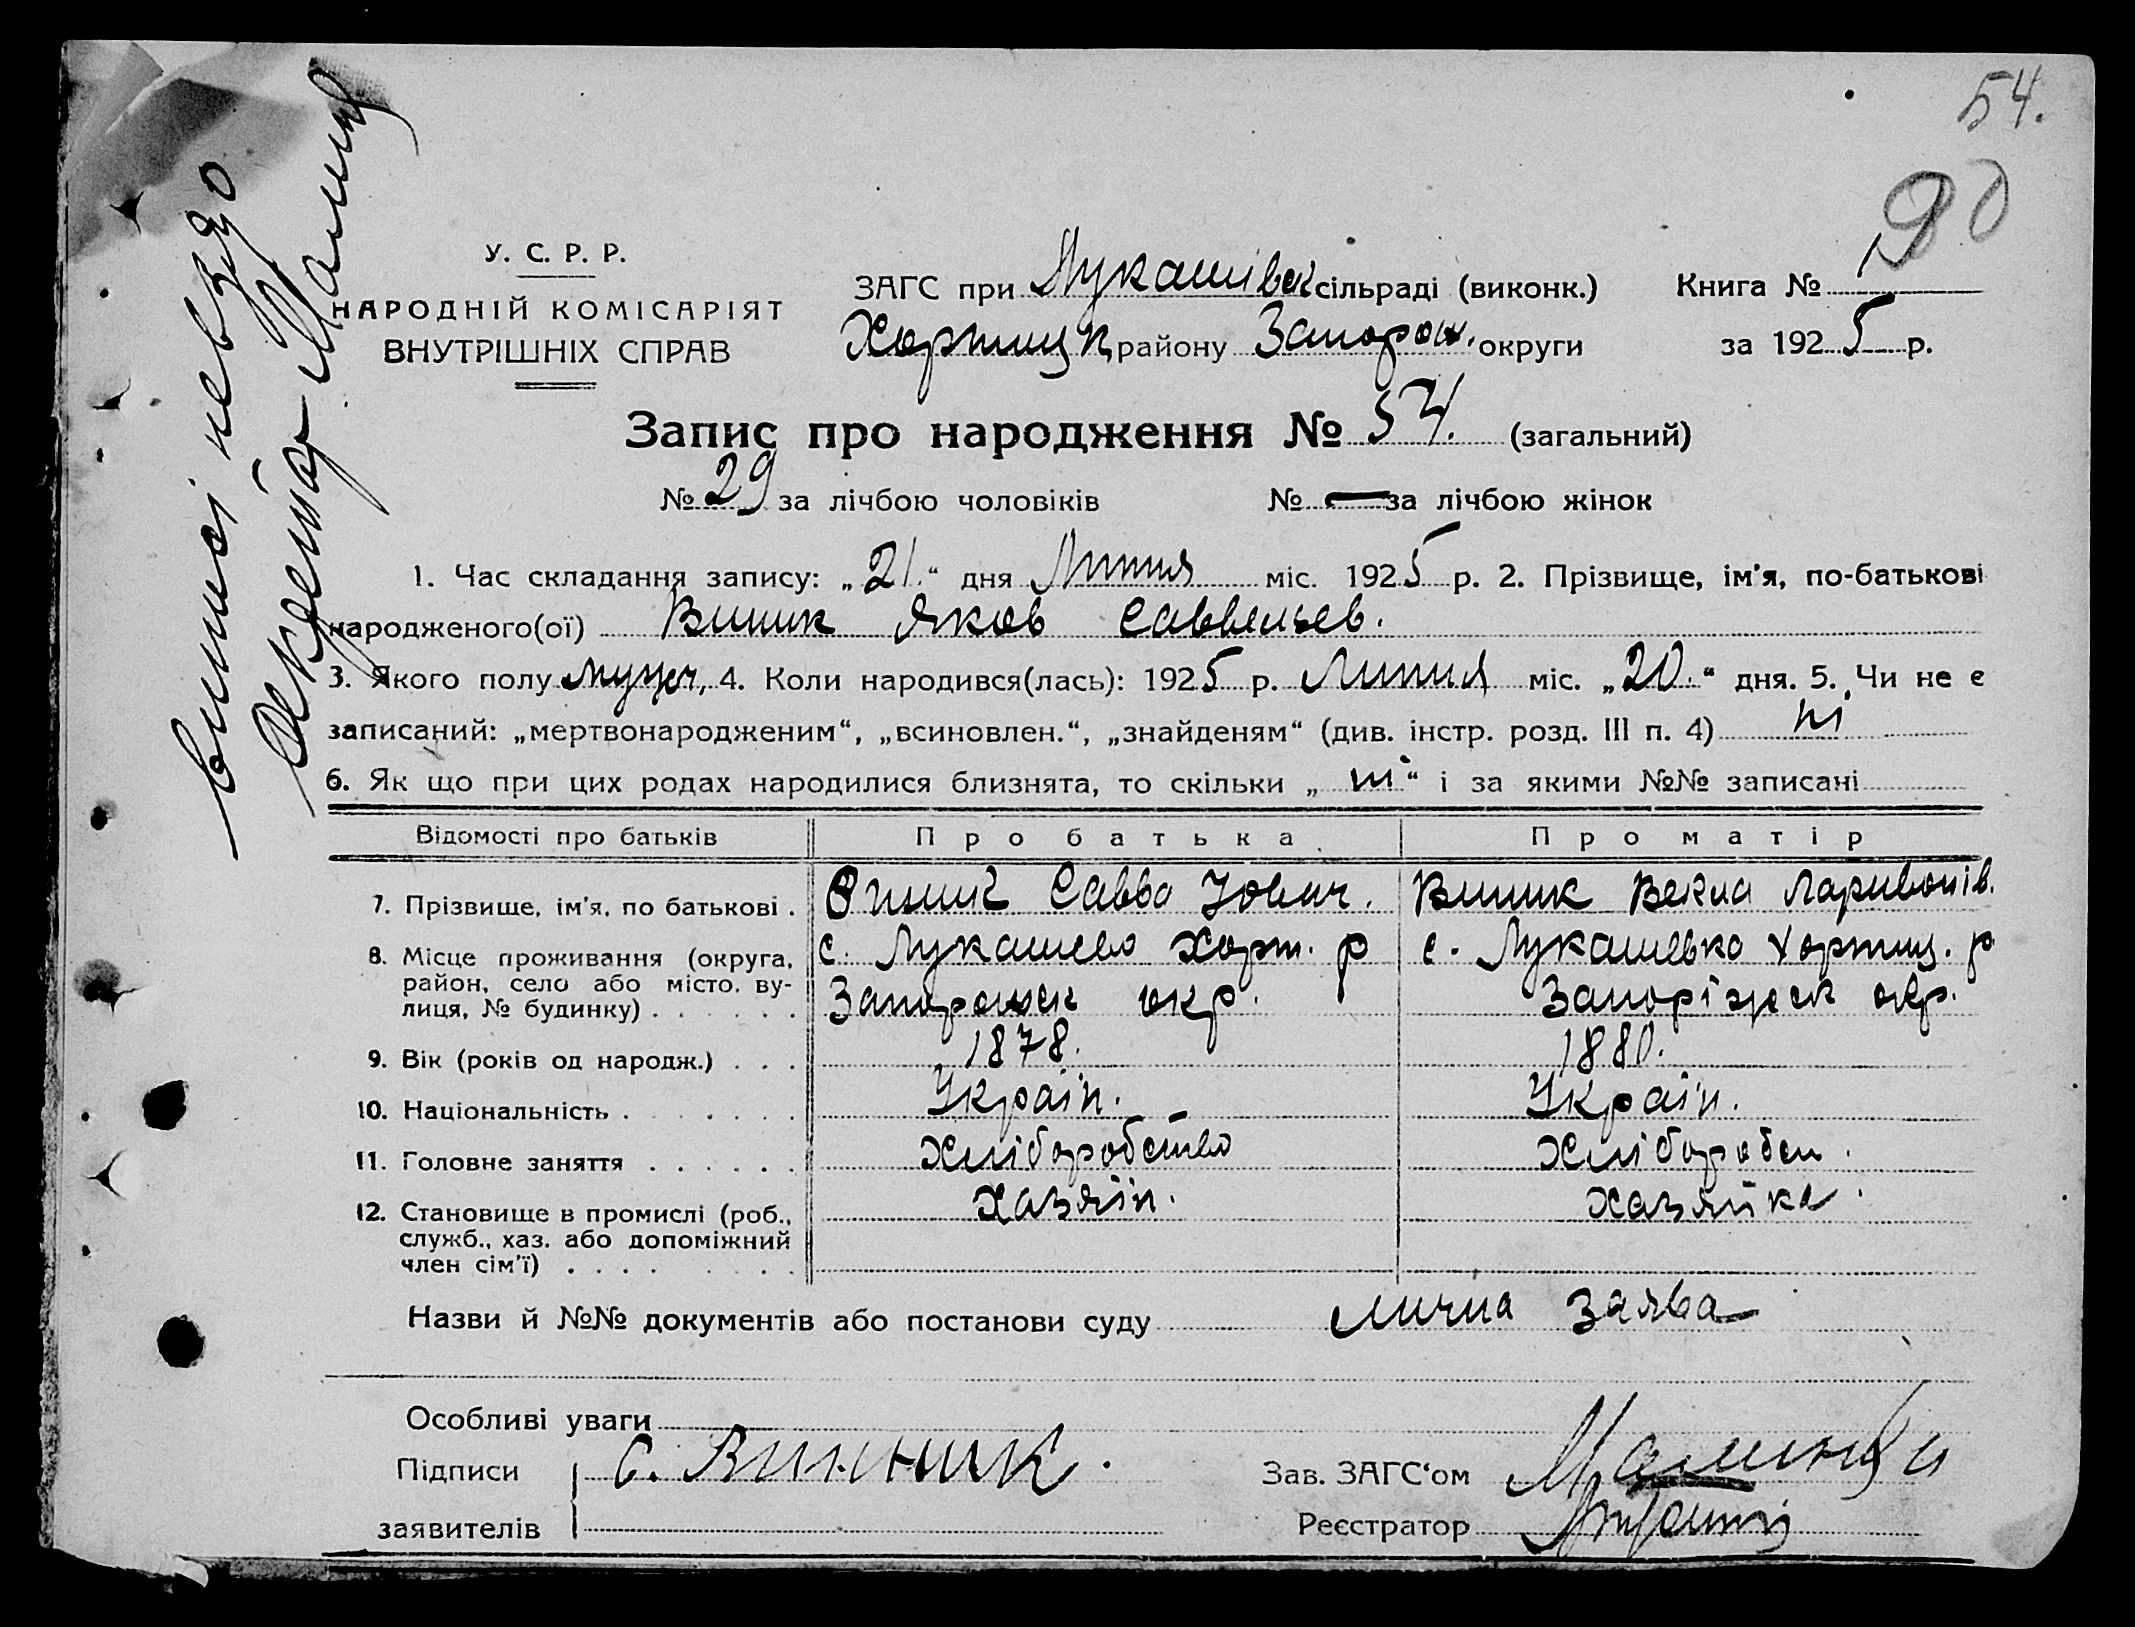 54.
90
У. С. Р. Р.
НАРОДНІЙ КОМІСАРІЯТ
ВНУТРІШНІХ СПРАВ
ЗАГС при Лукашівск сільраді (виконк.) Книга № 1
Хортицк району Запорож. округи за 1925 р.
Запис про народження № 54. (загальний)
№ 29 за лічбою чоловіків № — за лічбою жінок
1. Час складання запису: „21.“ дня Липня міс. 1925 р. 2. Прізвище, ім'я, по-батькові
народженого(ої) Виник Яков Саввельев.
3. Якого полу мужеч, 4. Коли народився(лась): 1925 р. Липня міс. „20.“ дня. 5. Чи не є
записаний: „мертвонародженим“, „всиновлен.“, „знайденям“ (див. інстр. розд. III п. 4) ні
6. Як що при цих родах народилися близнята, то скільки „ні“ і за якими №№ записані
Відомості про батьків Про батька Про матір
7. Прізвище, ім'я, по батькові . Виник Савва Йович. Виник Векла Ларивонів.
8. Місце проживання (округа, район, село або місто, вулиця, № будинку) . . . . . . с. Лукашево Хорт. р Запорожск окр. с. Лукашевко Хортиц. р Запоріжск окр.
9. Вік (років од народж.) . . . 1878. 1880.
10. Національність . . . . . . Україн. Україн.
11. Головне заняття . . . . . . Хліборобство Хлібороби.
12. Становище в промислі (роб., служб., хаз. або допоміжний член сім'ї) . . . . Хазяїн. Хазяйка.
Назви й №№ документів або постанови суду лична заява
Особливі уваги
Підписи заявителів С. Винник.
Зав. ЗАГС'ом
Реєстратор